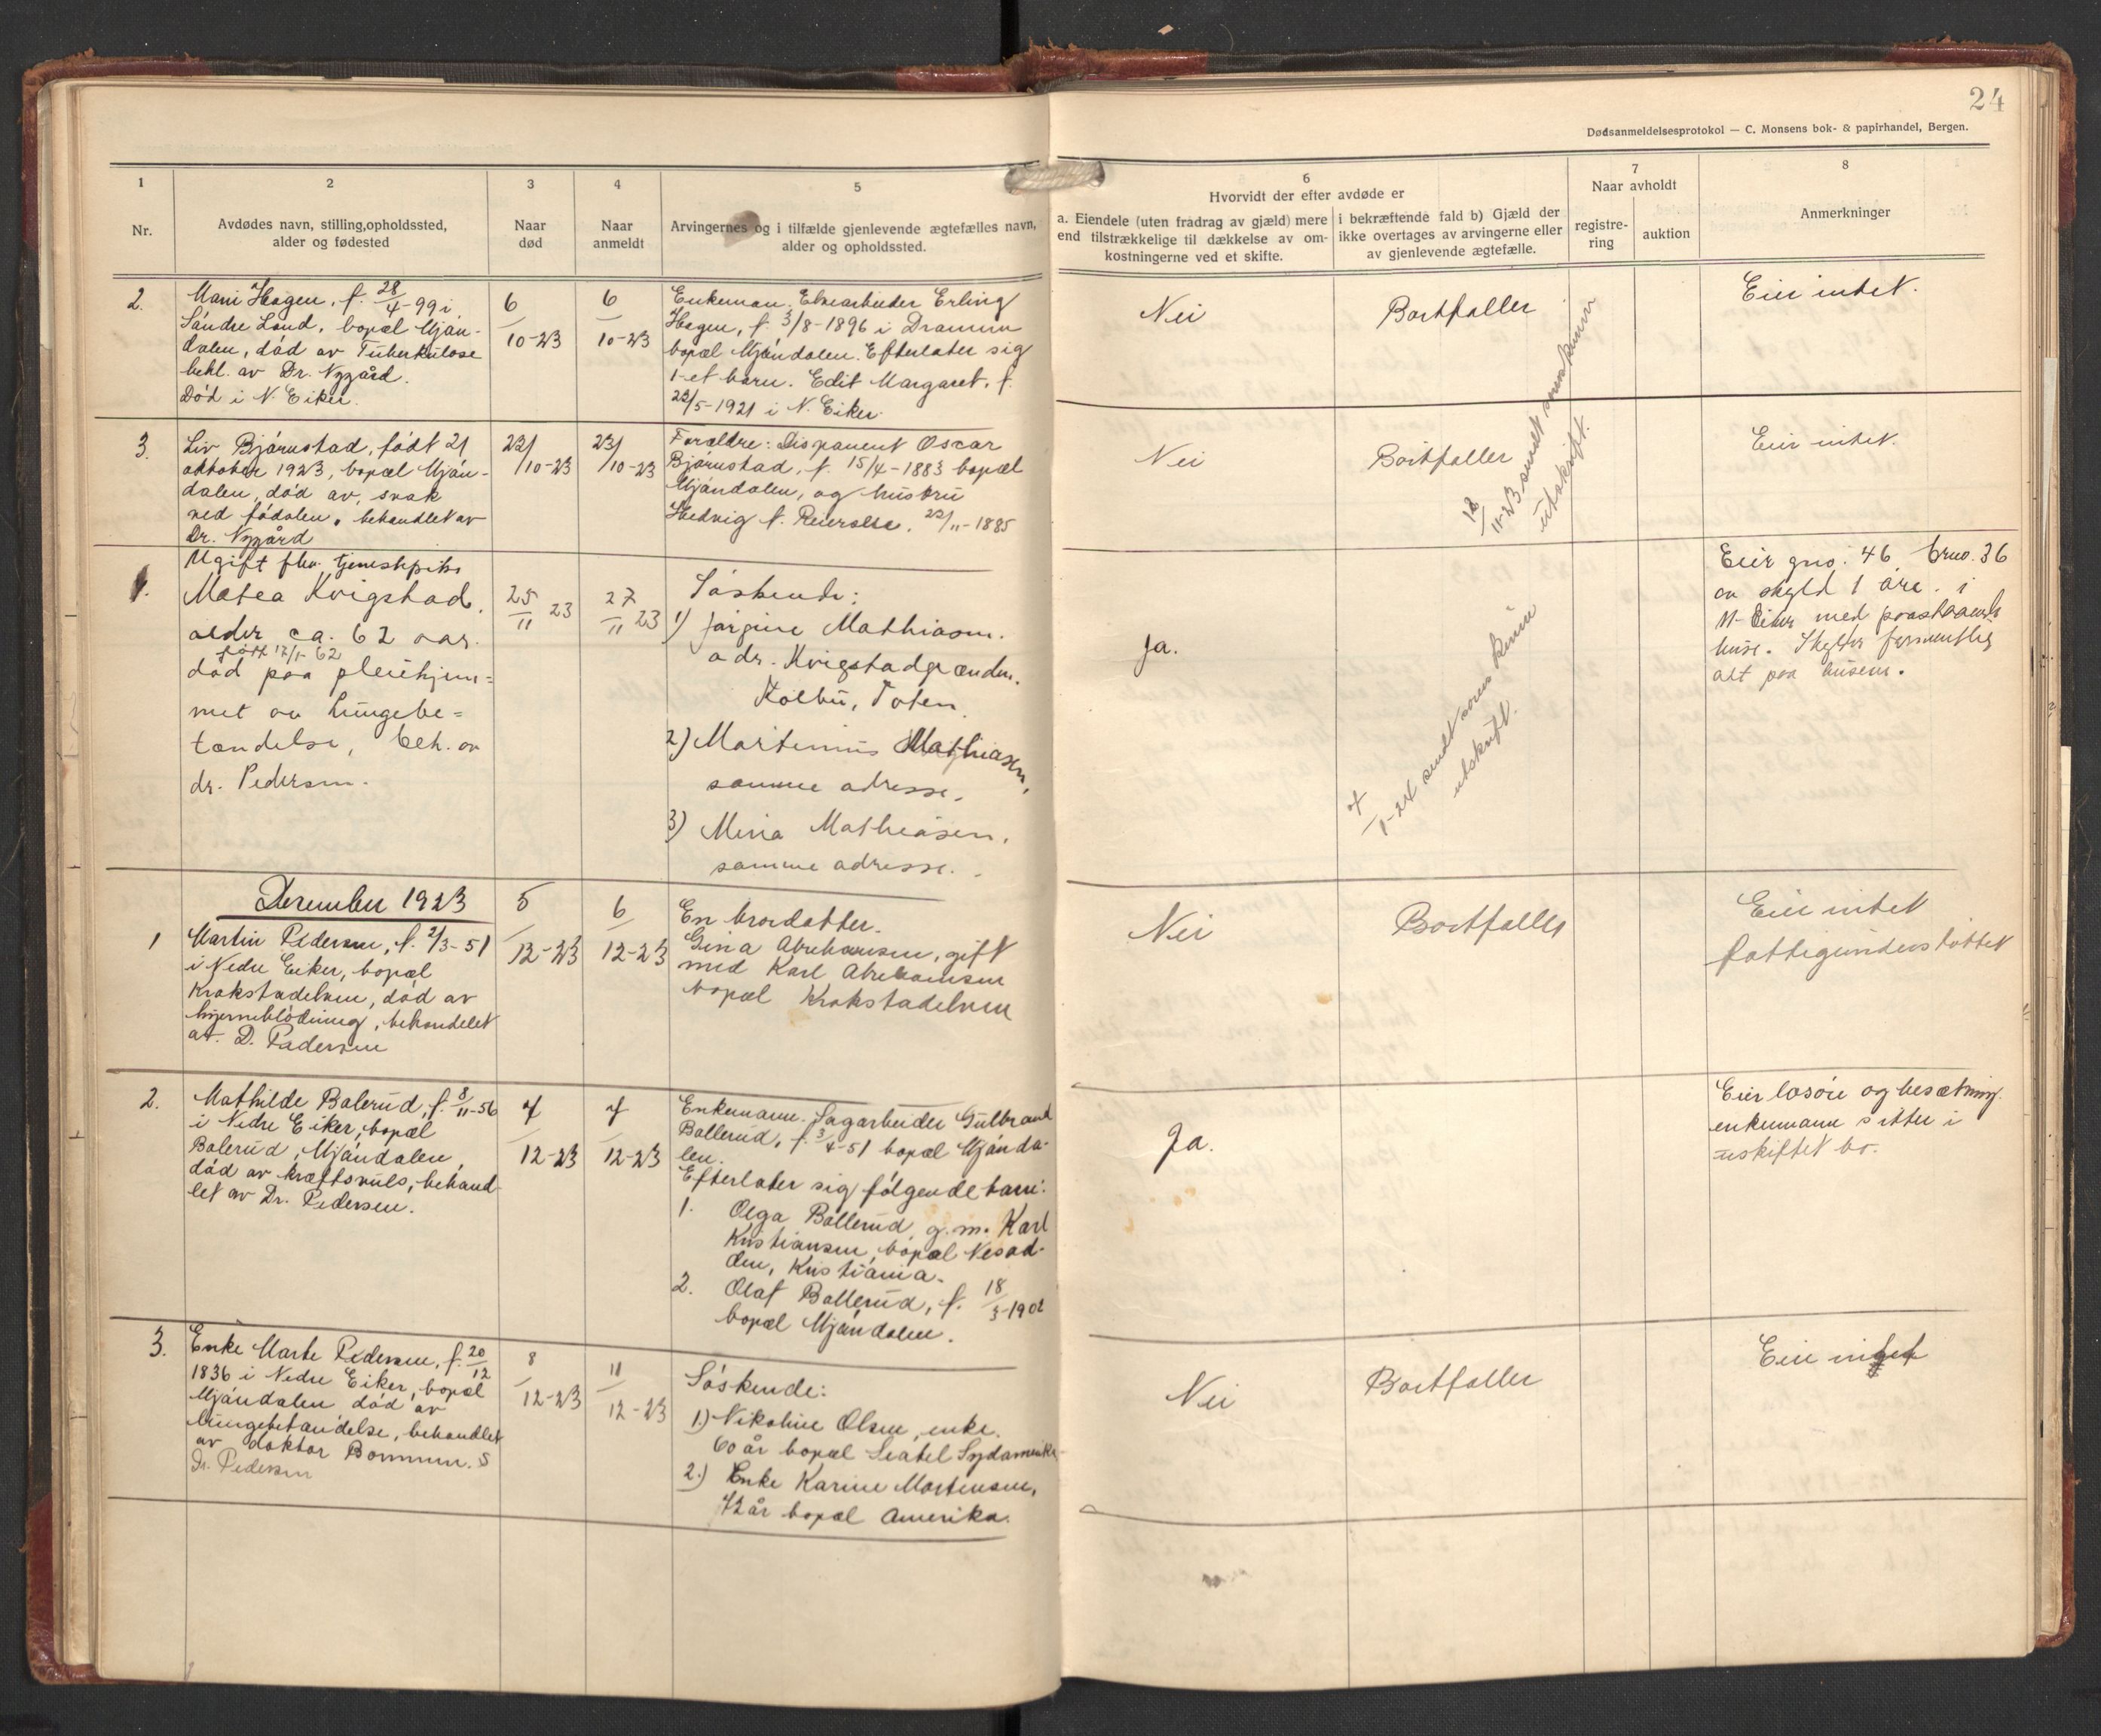 24
Dødsanmeldelsesprotokol — C. Monsens bok- & papirhandel, Bergen.
1
Nr.
2
Avdødes navn, stilling, opholdssted,
alder og fødested
3
Naar
død
4
Naar
anmeldt
5
Arvingernes og i tilfælde gjenlevende ægtefælles navn,
alder og opholdssted.
6
Hvorvidt der efter avdøde er
a. Eiendele (uten fradrag av gjæld) mere
end tilstrækkelige til dækkelse av om-
kostningerne ved et skifte.
i bekræftende fald b) Gjæld der
ikke overtages av arvingerne eller
av gjenlevende ægtefælle.
7
Naar avholdt
registre-
ring
auktion
8
Anmerkninger
2.
Mari Hagen, f. 28/4-99 i
Søndre Land, bopæl Mjøn-
dalen, død av Tuberkulose
behl. av Dr. Nygård.
Død i N. Eiker.
6/10-23
6/10-23
Enkeman. Elvearbeider Erling
Hagen, f. 3/8-1896 i Drammen
bopæl Mjøndalen. Efterlater sig
1-et barn. Edit Margaret, f.
22/5-1921 i N. Eiker.
Nei
Bortfaller
Eier intet.
3.
Liv Bjørnstad, født 21
oktober 1923, bopæl Mjøn-
dalen, død av, svak
ved fødslen, behandlet av
Dr. Nygård
23/10-23
23/10-23
Forældre: Disponent Oscar
Bjørnstad, f. 15/4-1883 bopæl
Mjøndalen, og hustru
Hedvig f. 22/11-1885
Nei
Bortfaller
18/11-23 sendt
utskrift.
Eier intet.
1.
Ugift fhv. tjenestepike
Matea Kvigstad.
alder ca. 62 aar.
født 17/1-62
død paa pleiehjem=
met av lungebe=
tændelse, beh. av
dr. Pedersen.
25/11 23
27/11 23
Søskende:
1) Jørgine Mathiasen.
adr. Kvigstadgrænden.
Kolbu, Toten.
2) Martinius Mathiasen,
samme adresse.
3) Mina Mathiasen,
samme adresse.
Ja.
7/1-24 sendt
utskrift.
Eier gno. 46 brno. 36
av skyld 1 øre. i
N. Eiker med paastaaende
huse. Skylder formentlig
alt paa husene.
December 1923
1
Martin Pedersen, f. 2/3-51
i Nedre Eiker, bopæl
Krokstadelven, død av
hjerneblødning, behandelet
av. D. Pedersen
5/12-23
6/12-23
En brordatter.
Gina Abrehamsen, gift
med Karl Abrehamsen
bopæl Krokstadelven
Nei
Bortfaller
Eier intet
fattigunderstøttet
2.
Mathilde Balerud, f. 8/11-56
i Nedre Eiker, bopæl
Balerud, Mjøndalen,
død av kræftsvuls, behand-
let av Dr. Pedersen.
7/12-23
7/12-23
Enkemann. Sagarbeider Gulbrand
Ballerud, f. 3/4-51 bopæl Mjønda-
len.
Efterlater sig følgende barn:
1. Olga Ballerud, g.m. Karl
Kristiansen, bopæl Nesod-
den, Kristiania.
2. Olaf Ballerud, f. 18/3-1901
bopæl Mjøndalen.
Ja.
Eier løsøre og besætning.
enkemann sitter i
uskiftet bo.
3.
Enke Marte Pedersen, f. 20/12
1836 i Nedre Eiker, bopæl
Mjøndalen, død av
lungebetændelse, behandlet
av doktor
Dr. Pedersen
8/12-23
11/12-23
Søskende:
1.) Nikoline Olsen, enke.
60 år bopæl Seatel Sydamerika
2.) Enke Karine Mortensen,
72 år bopæl Amerika.
Nei
Bortfaller
Eier intet